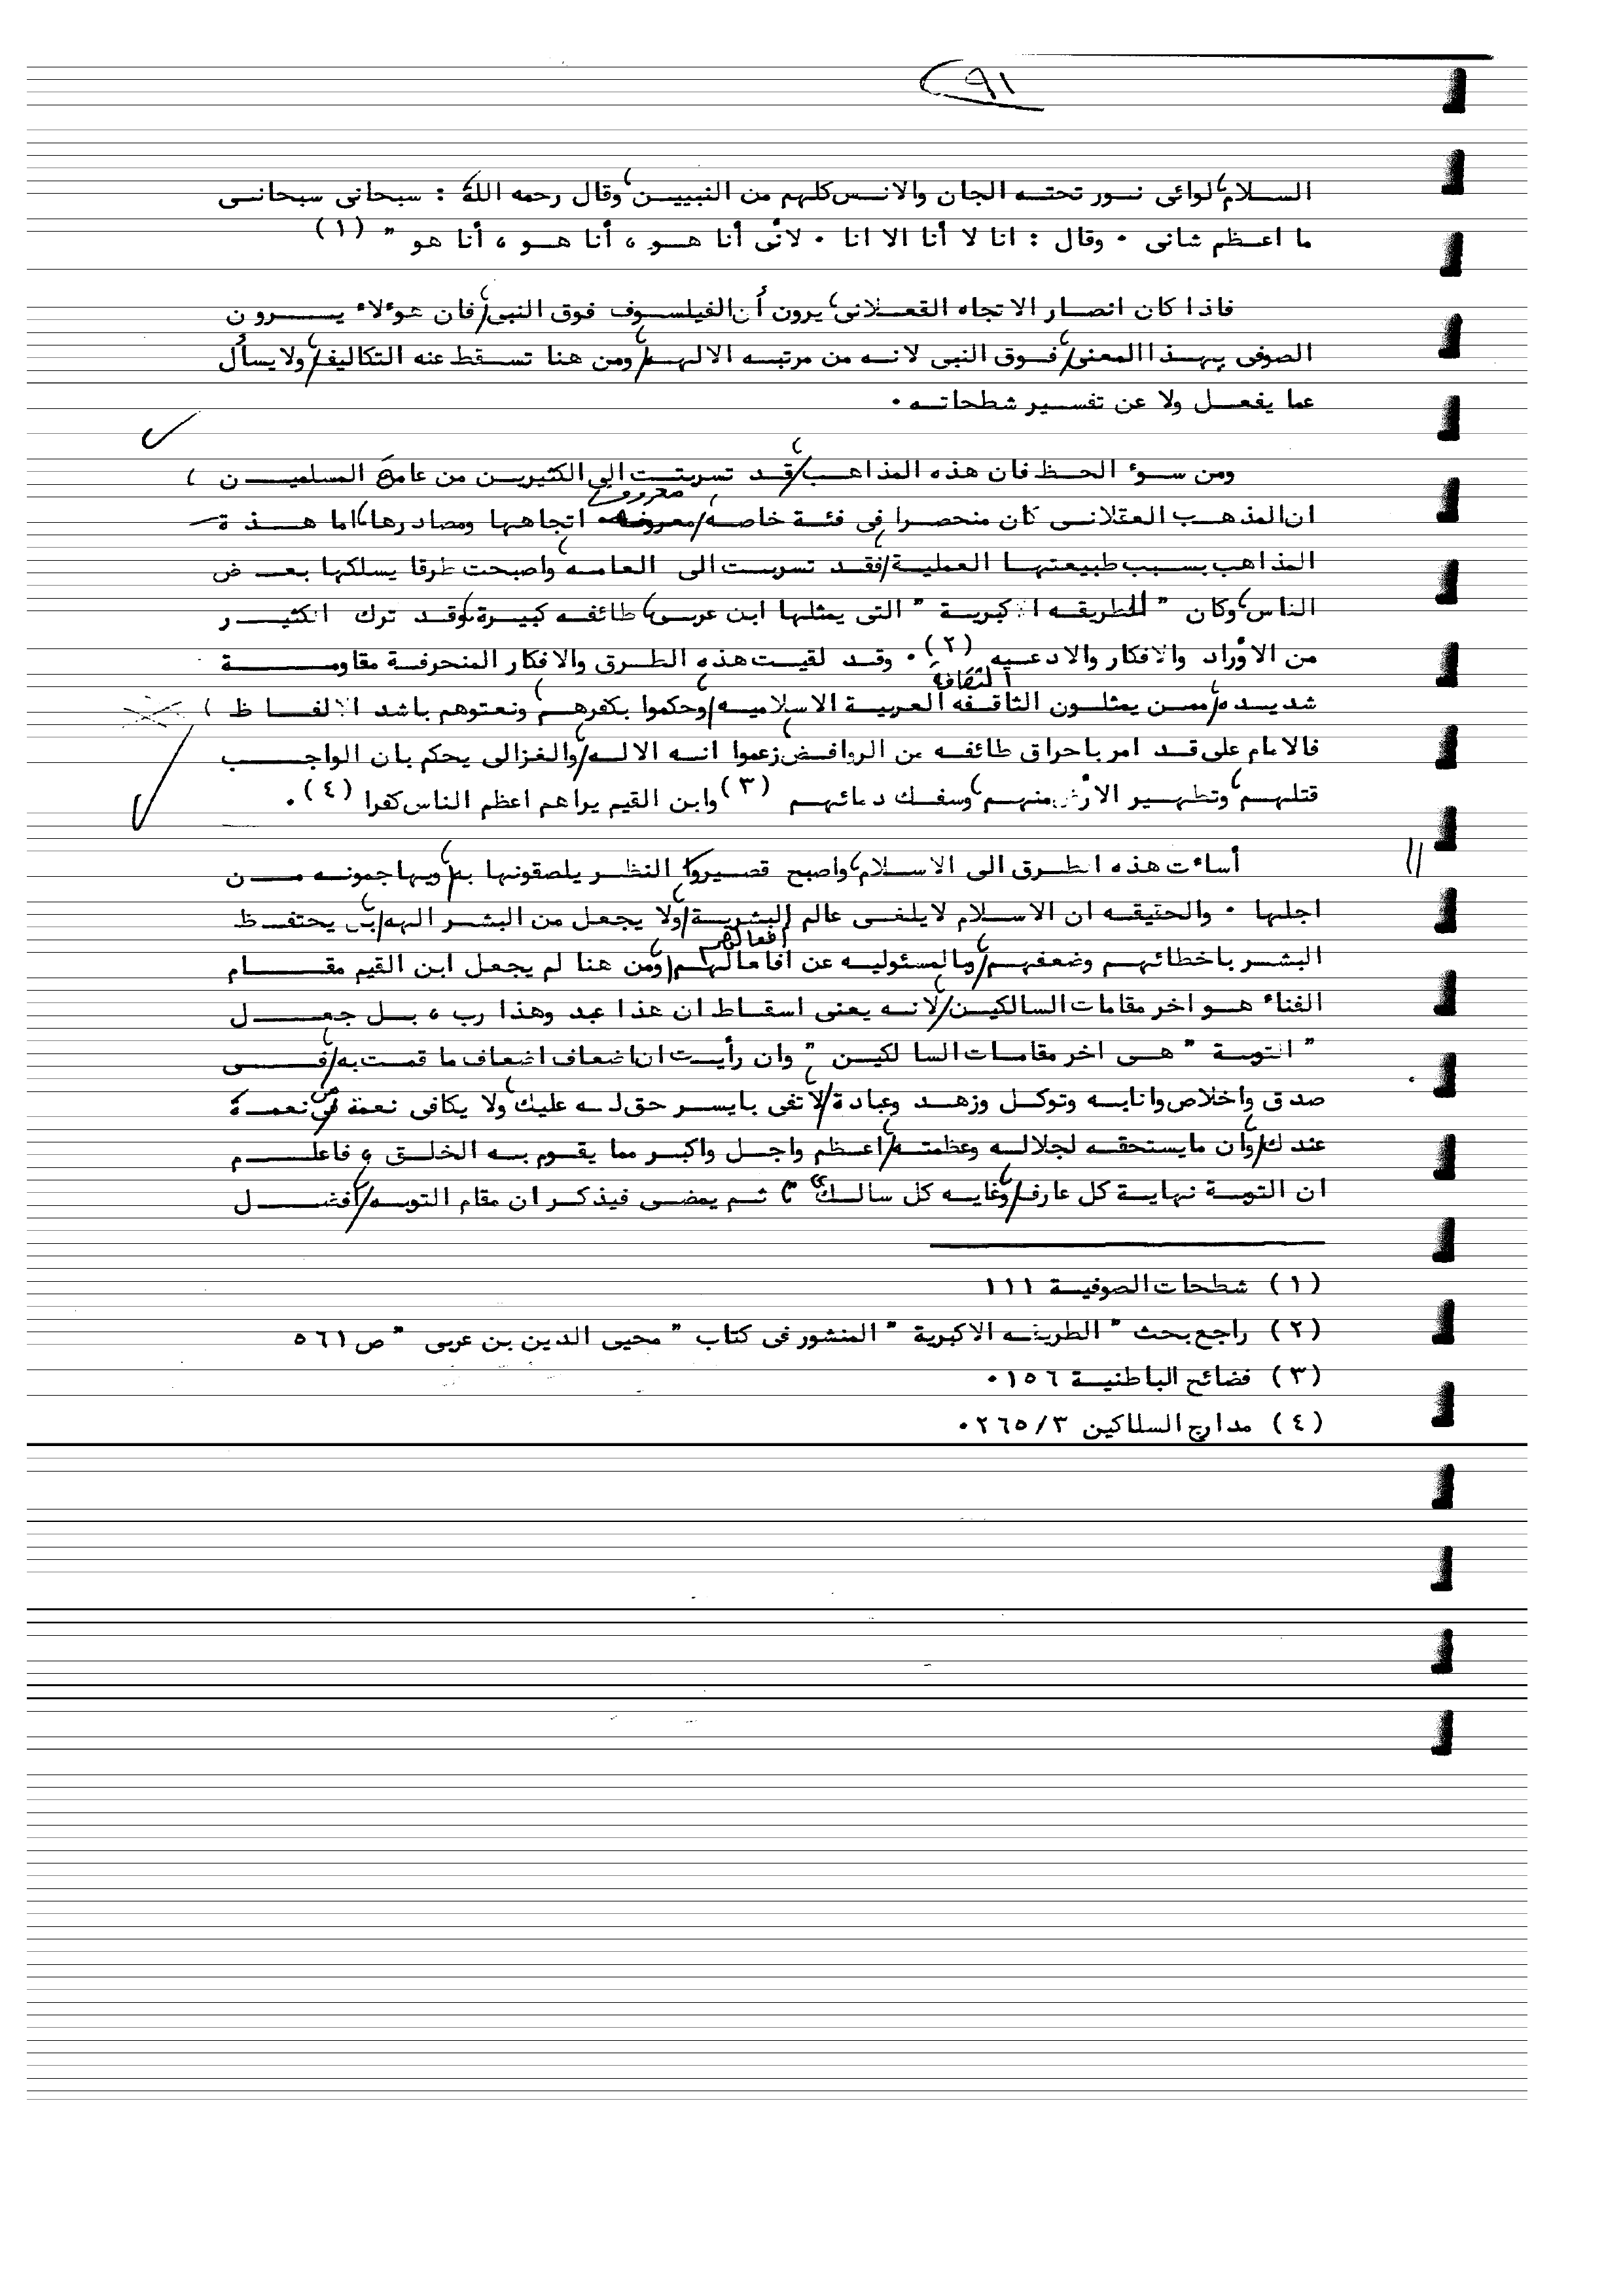 ٩١
السلام، لوائى نور تحته الجان والانس كلهم من النبيين، وقال رحمه الله : سبحانى سبحانى
ما اعظم شانى ٠ وقال : انا لا أنا الا انا ٠ لأنى أنا هو ، أنا هو ، أنا هو " (١)
فاذا كان انصار الاتجاه القعلانى، يرون أن الفيلسوف فوق النبى، فان هوءلاء يرون
الصوفى بهذا المعنى، فوق النبى لانه من مرتبه الالهم، ومن هنا تسقط عنه التكاليف، ولا يسأل
عما يفعل ولا عن تفسير شطحاته ٠
ومن سوء الحظ فان هذه المذاهب، قد تسربت الى الكثيرين من عامة المسلمين ،
ان المذهب العقلانى كان منحصرا فى فئة خاصه، معروف اتجاهها ومصادرها، اما هذة
المذاهب بسبب طبيعتها العملية، فقد تسربت الى العامه، واصبحت طرقا يسلكها بعض
الناس، وكان " الطريقه الاكبرية " التى يمثلها ابن عربى، طائفه كبيرة، وقد ترك الكثير
من الأوراد والافكار والادعيه (٢) ٠ وقد لقيت هذه الطرق والافكار المنحرفة مقاومة
شديده، ممن يمثلون الثقافة العربية الاسلاميه، وحكموا بكفرهم، ونعتوهم باشد الالفاظ ،
فالامام على قد امر باحراق طائفه من الروافض، زعموا انه الاله، والغزالى يحكم بان الواجب
قتلهم، وتطهير الأرض منهم، وسفك دمائهم (٣) وابن القيم يراهم اعظم الناس كفرا (٤) ٠
أساءت هذه الطرق الى الاسلام، واصبح قصيروا النظر يلصقونها به، ويهاجمونه من
اجلها ٠ والحقيقه ان الاسلام لا يلغى عالم البشرية، ولا يجعل من البشر الهه، بل يحتفظ
البشر باخطائهم وضعفهم، وبالمسئوليه عن أفعالهم، ومن هنا لم يجعل ابن القيم مقام
الفناء هو اخر مقامات السالكين، لانه يعنى اسقاط ان هذا عبد وهذا رب ، بل جعل
" التوبة " هى اخر مقامات السا لكين " وان رأيت ان اضعاف اضعاف ما قمت به، فى
صدق واخلاص وانابه وتوكل وزهد وعبادة، لا تفى بايسر حق له عليك، ولا يكافى نعمة من نعمة
عندك، وأن ما يستحقه لجلاله وعظمته، اعظم واجل واكبر مما يقوم به الخلق ، فاعلم
ان التوبة نهاية كل عارف، وغايه كل سالك " ثم يمضى فيذكر ان مقام التوبه، افضل
(١) شطحات الصوفية ١١١
(٢) راجع بحث " الطريقه الاكبرية " المنشور فى كتاب " محيى الدين بن عربى " ص ٥٦١
(٣) فضائح الباطنية ١٥٦٠
(٤) مدارج السلاكين ٣/ ٢٦٥٠